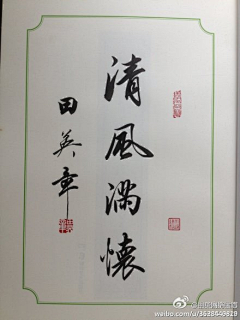 清風滿懷
田英章
weibo.com/u/3638440628